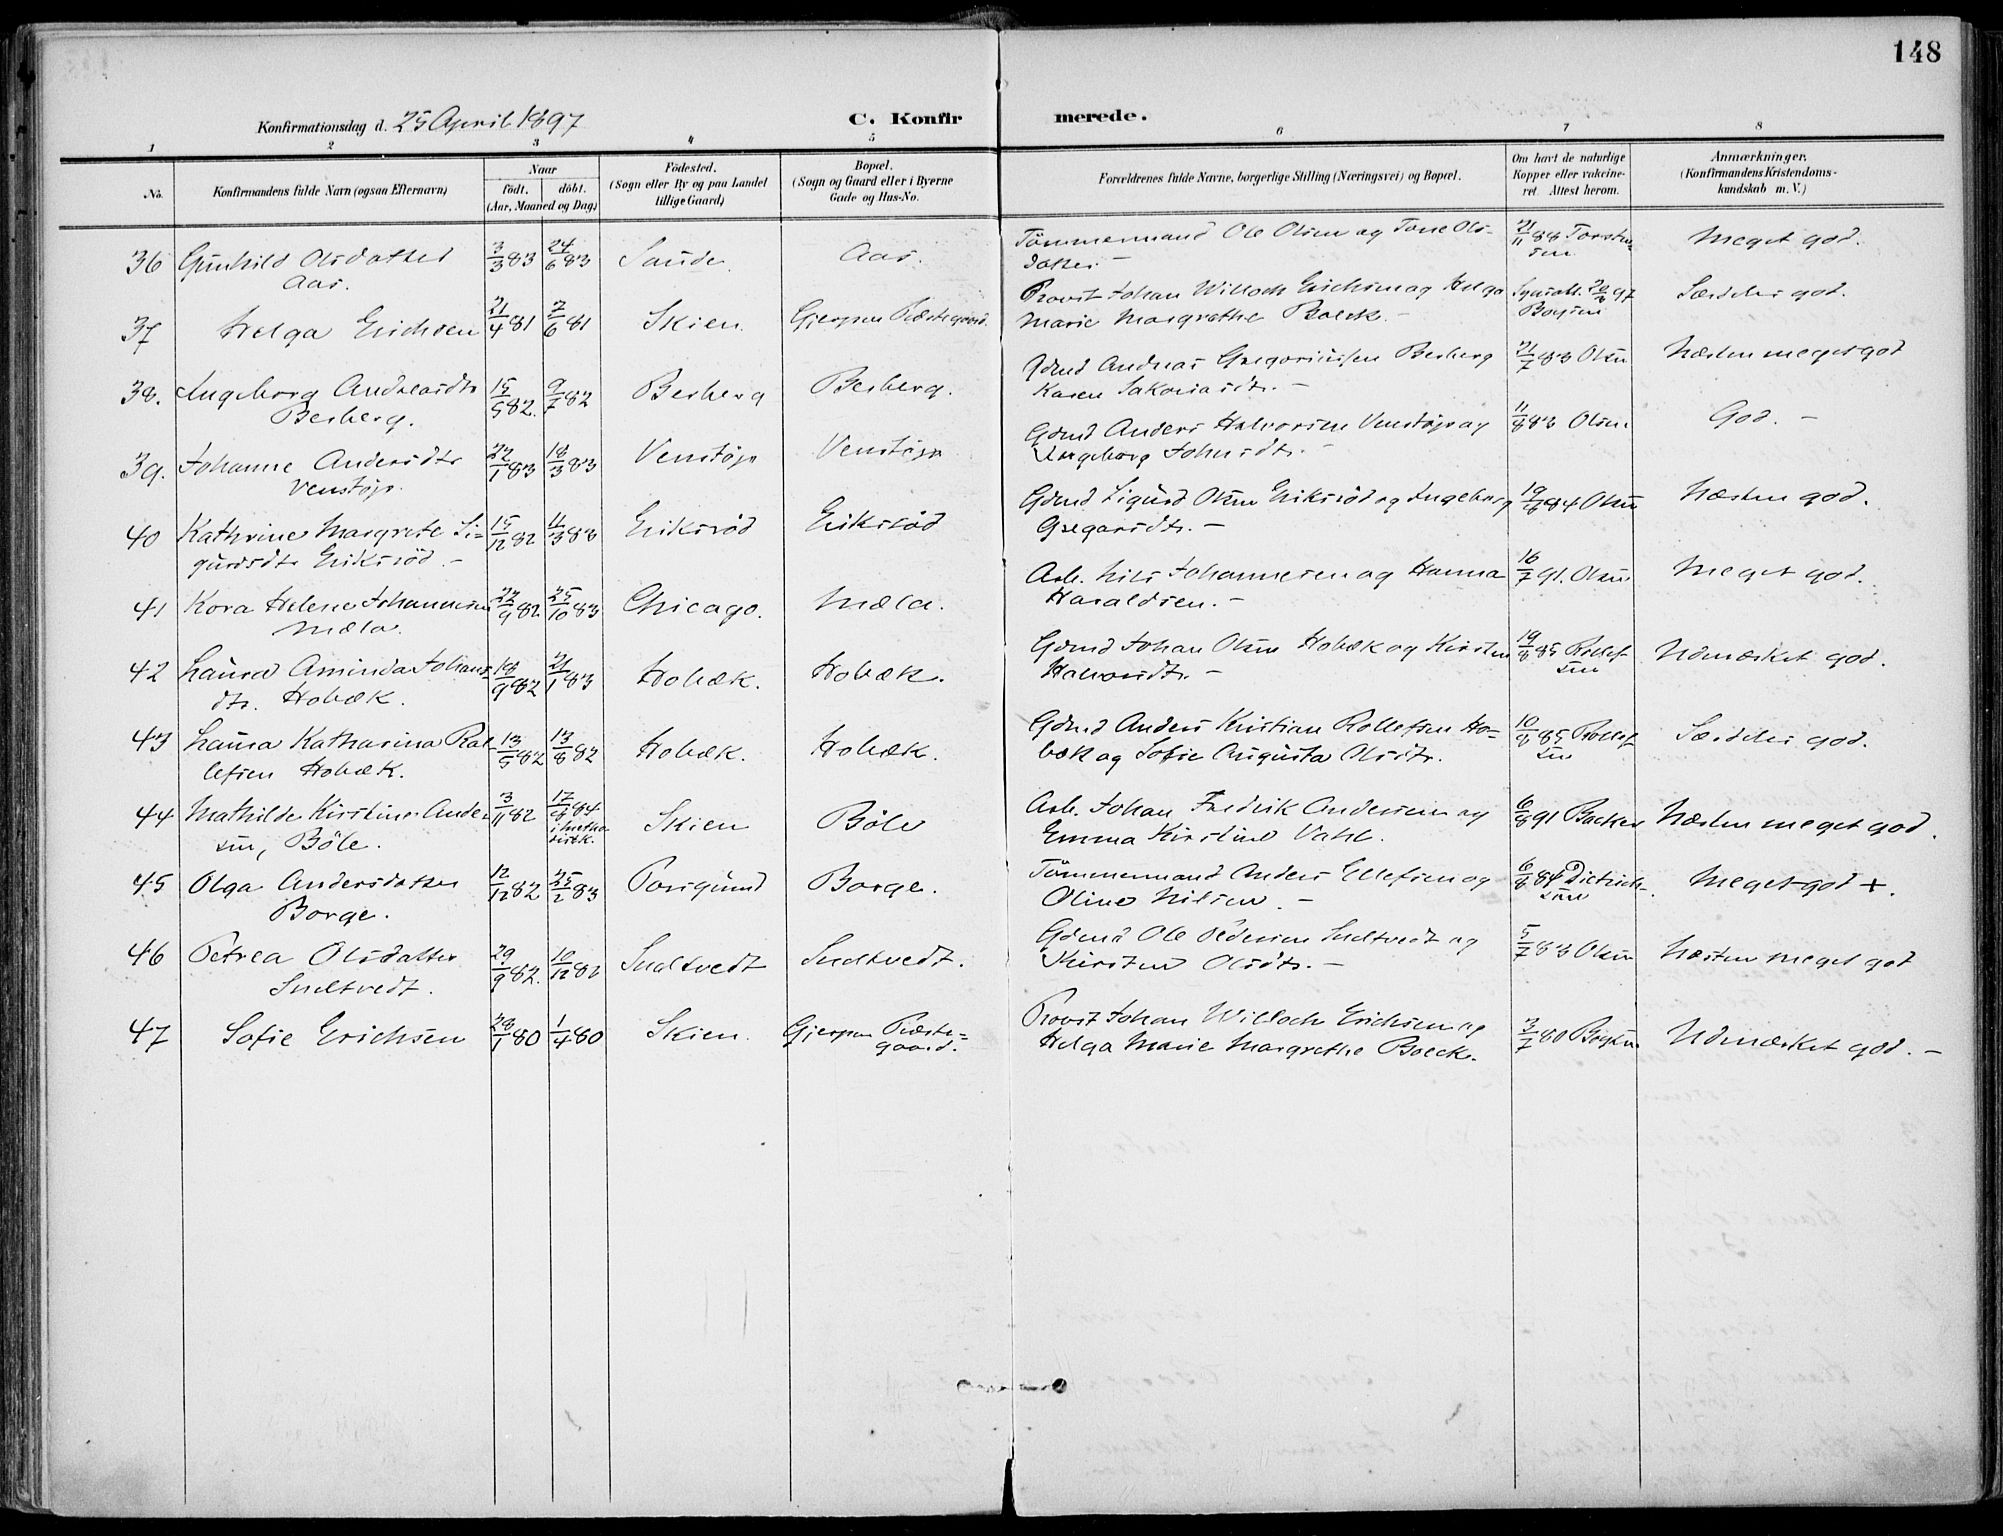 148
Konfirmationsdag d. 25 April 1897 C. Konfirmerede.
1 2 3 4 5 6 7 8
No. Konfirmandens fulde Navn (ogsaa Efternavn) Naar födt. döbt. (Aar, Maaned og Dag) Födested. (Sogn eller By og paa Landet tillige Gaard) Bopæl. (Sogn og Gaard eller i Byerne Gade og Hus-No. Forældrenes fulde Navne, borgerlige Stilling (Næringsvei) og Bopæl. Om havt de naturlige Kopper eller vakcineret. Attest herom. Anmærkninger. (Konfirmandens Kristendomskundskab m. V.)
36 Gunhild Olsdatter 3/3 83 24/6 83 Saude. Aas. Tömmermand Ole Olsen og Tone Ols- 21/11 88 Torsten- Meget god.
Aas. datter. – sen
37 Helga Erichsen 21/4 81 2/6 81 Skien. Gjerpen Præstegaard. Provst Johan Willoch Erichsen og Helga 97 Særdeles god.
Marie Margrethe Boeck. – Boysen
38. Ingeborg Andreasdtr 15/5 82. 9/7 82 Besberg Besberg. Gdmd Andreas Gregoriussen Besberg 21/7 83 Olsen Næsten meget god
Besberg. Karen Sakariasdtr. –
39. Johanne Andersdtr 22/1 83 18/3 83 Venstöp Venstöp Gdmd Anders Halvorsen Venstöp og 11/8 83 Olsen God. –
Venstöp. Ingeborg Johnsdtr. –
40 Kathrine Margrete Si- 15/12 82 11/3 83 Eriksröd Eriksröd Gdmd Sigurd Olsen Eriksröd og Ingeborg 19/8 84 Olsen Næsten god.
gurdsdtr Eriksröd. – Gregarsdtr. –
41 Kora Helene Johannesen 22/9 82 25/10 83 Chicago. Mæla. Arb. Nils Johannesen og Hanna 16/7 91. Olsen Meget god.
Mæla. Haraldsen. –
42 Laura Aminda Johans- 18/9 82 21/1 83 Hobæk. Hobæk. Gdmd Johan Olsen Hobæk og Kirsten 19/8 85 Rollef- Udmærket god.
dtr. Hobæk. Halvorsdtr. – sen
43 Laura Katharina Rol- 13/5 82 13/8 82 Hobæk. Hobæk. Gdmd Anders Kristian Rollefsen Ho- 10/8 85 Rollef- Særdeles god.
lefsen Hobæk. bæk og Sofie Augusta Olsdtr. sen
44 Mathilde Kirstine Ander- 3/11 82 17/8 84 Skien Böle Arb. Johan Fredrik Andersen og 6/8 91 Backer Næsten meget god.
sen, Böle. Emma Kirstine Vahl.
45 Olga Andersdatter 12/12 82 25/2 83 Porsgrund Borge. Tömmermand Anders Ellefsen og 6/8 84 Dietrich- Meget god +.
Borge. Oline Nilsen. – son
46 Petrea Olsdatter 29/9 82. 10/12 82 Sneltvedt Sneltvedt. Gdmd Ole Pedersen Sneltvedt og 5/7 83 Olsen Næsten meget god
Sneltvedt. Kirsten Olsdtr. –
47 Sofie Erichsen 28/1 80 1/4 80 Skien. Gjerpen Præste- Provst Johan Willoch Erichsen og 3/7 80 Boysen Udmærket god. –
gaard. Helga Marie Margrethe Boeck.